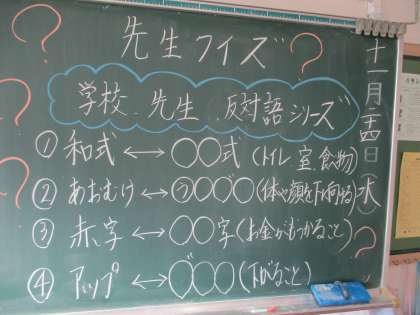 先生クイズ
学校、先生、反対語シリーズ
① 和式 ↔ ○○式 (トイレ、室、食物)
② あおむけ ↔ うつ○゛○ (体や顔を下に向ける)
③ 赤字 ↔ ○○字 (お金がもうかること)
④ アップ ↔ ○゛○○ (下がること)
十一月二十四日(水)